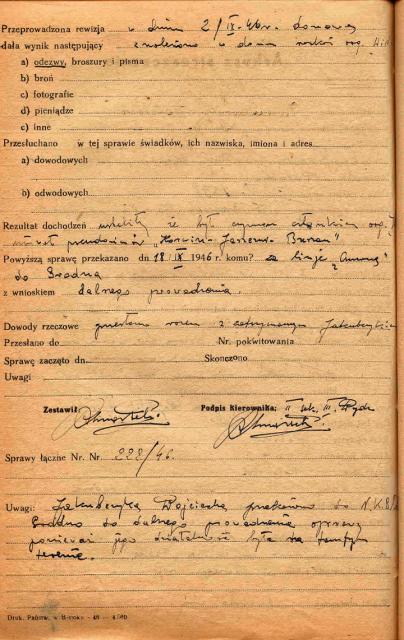 Przeprowadzona rewizja w dniu 2/IX-46r. domowa
dała wynik następujący znaleziono w domu
a) odezwy, broszury i pisma
b) broń
c) fotografie
d) pieniądze
c) inne
Przesłuchano w tej sprawie świadków, ich nazwiska, imiona i adres
a) dowodowych
b) odwodowych
Rezultat dochodzeń że był czynnym członkiem org.
pseudonimów
Powyższą sprawę przekazano dn 18/IX 1946 r. komu?
do Grodna
z wnioskiem dalsznego prowadzenia.
Dowody rzeczowe przesłano razem z zatrzymanym
Przesłano do Nr. pokwitowania
Sprawę zaczęto dn. Skonczono
Uwagi
Zestawił: Podpis kierownika: II sek. III.
Sprawy łączne Nr. Nr. 228/46.
Uwagi: Wojciecha do N.K.G.B.
Grodno do dalszego prowadzenia sprawy
ponieważ jego działalność była na tamtym
terenie.
Druk. Państw. w B-stoku - 46 -